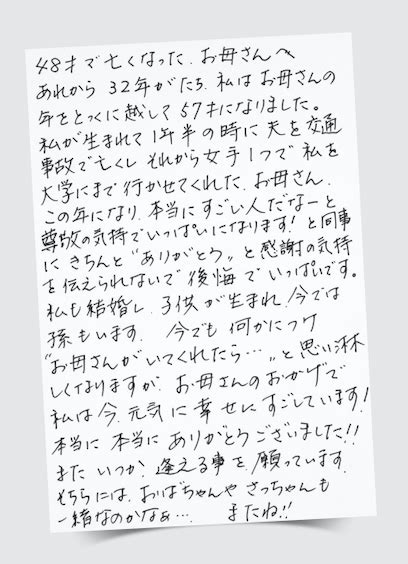 48才で亡くなった、お母さんへ
あれから 32年がたち、私はお母さんの
年をとっくに越して57才になりました。
私が生まれて1年半の時に夫を交通
事故で亡くし それから女手1つで 私を
大学にまで行かせてくれた、お母さん、
この年になり、本当にすごい人だなーと
尊敬の気持でいっぱいになります!と同時
に きちんと"ありがとう"と感謝の気持
を伝えられないで後悔でいっぱいです。
私も結婚し、子供が生まれ、今では
孫もいます。 今でも何かにつけ
"お母さんがいてくれたら…"と思い淋
しくなりますが、お母さんのおかげで
私は今、元気に幸せにすごしています!
本当に 本当に ありがとうございました!!
また いつか、逢える事を願っています。
そちらには、おばちゃんや さっちゃんも
一緒なのかなぁ… またね!!